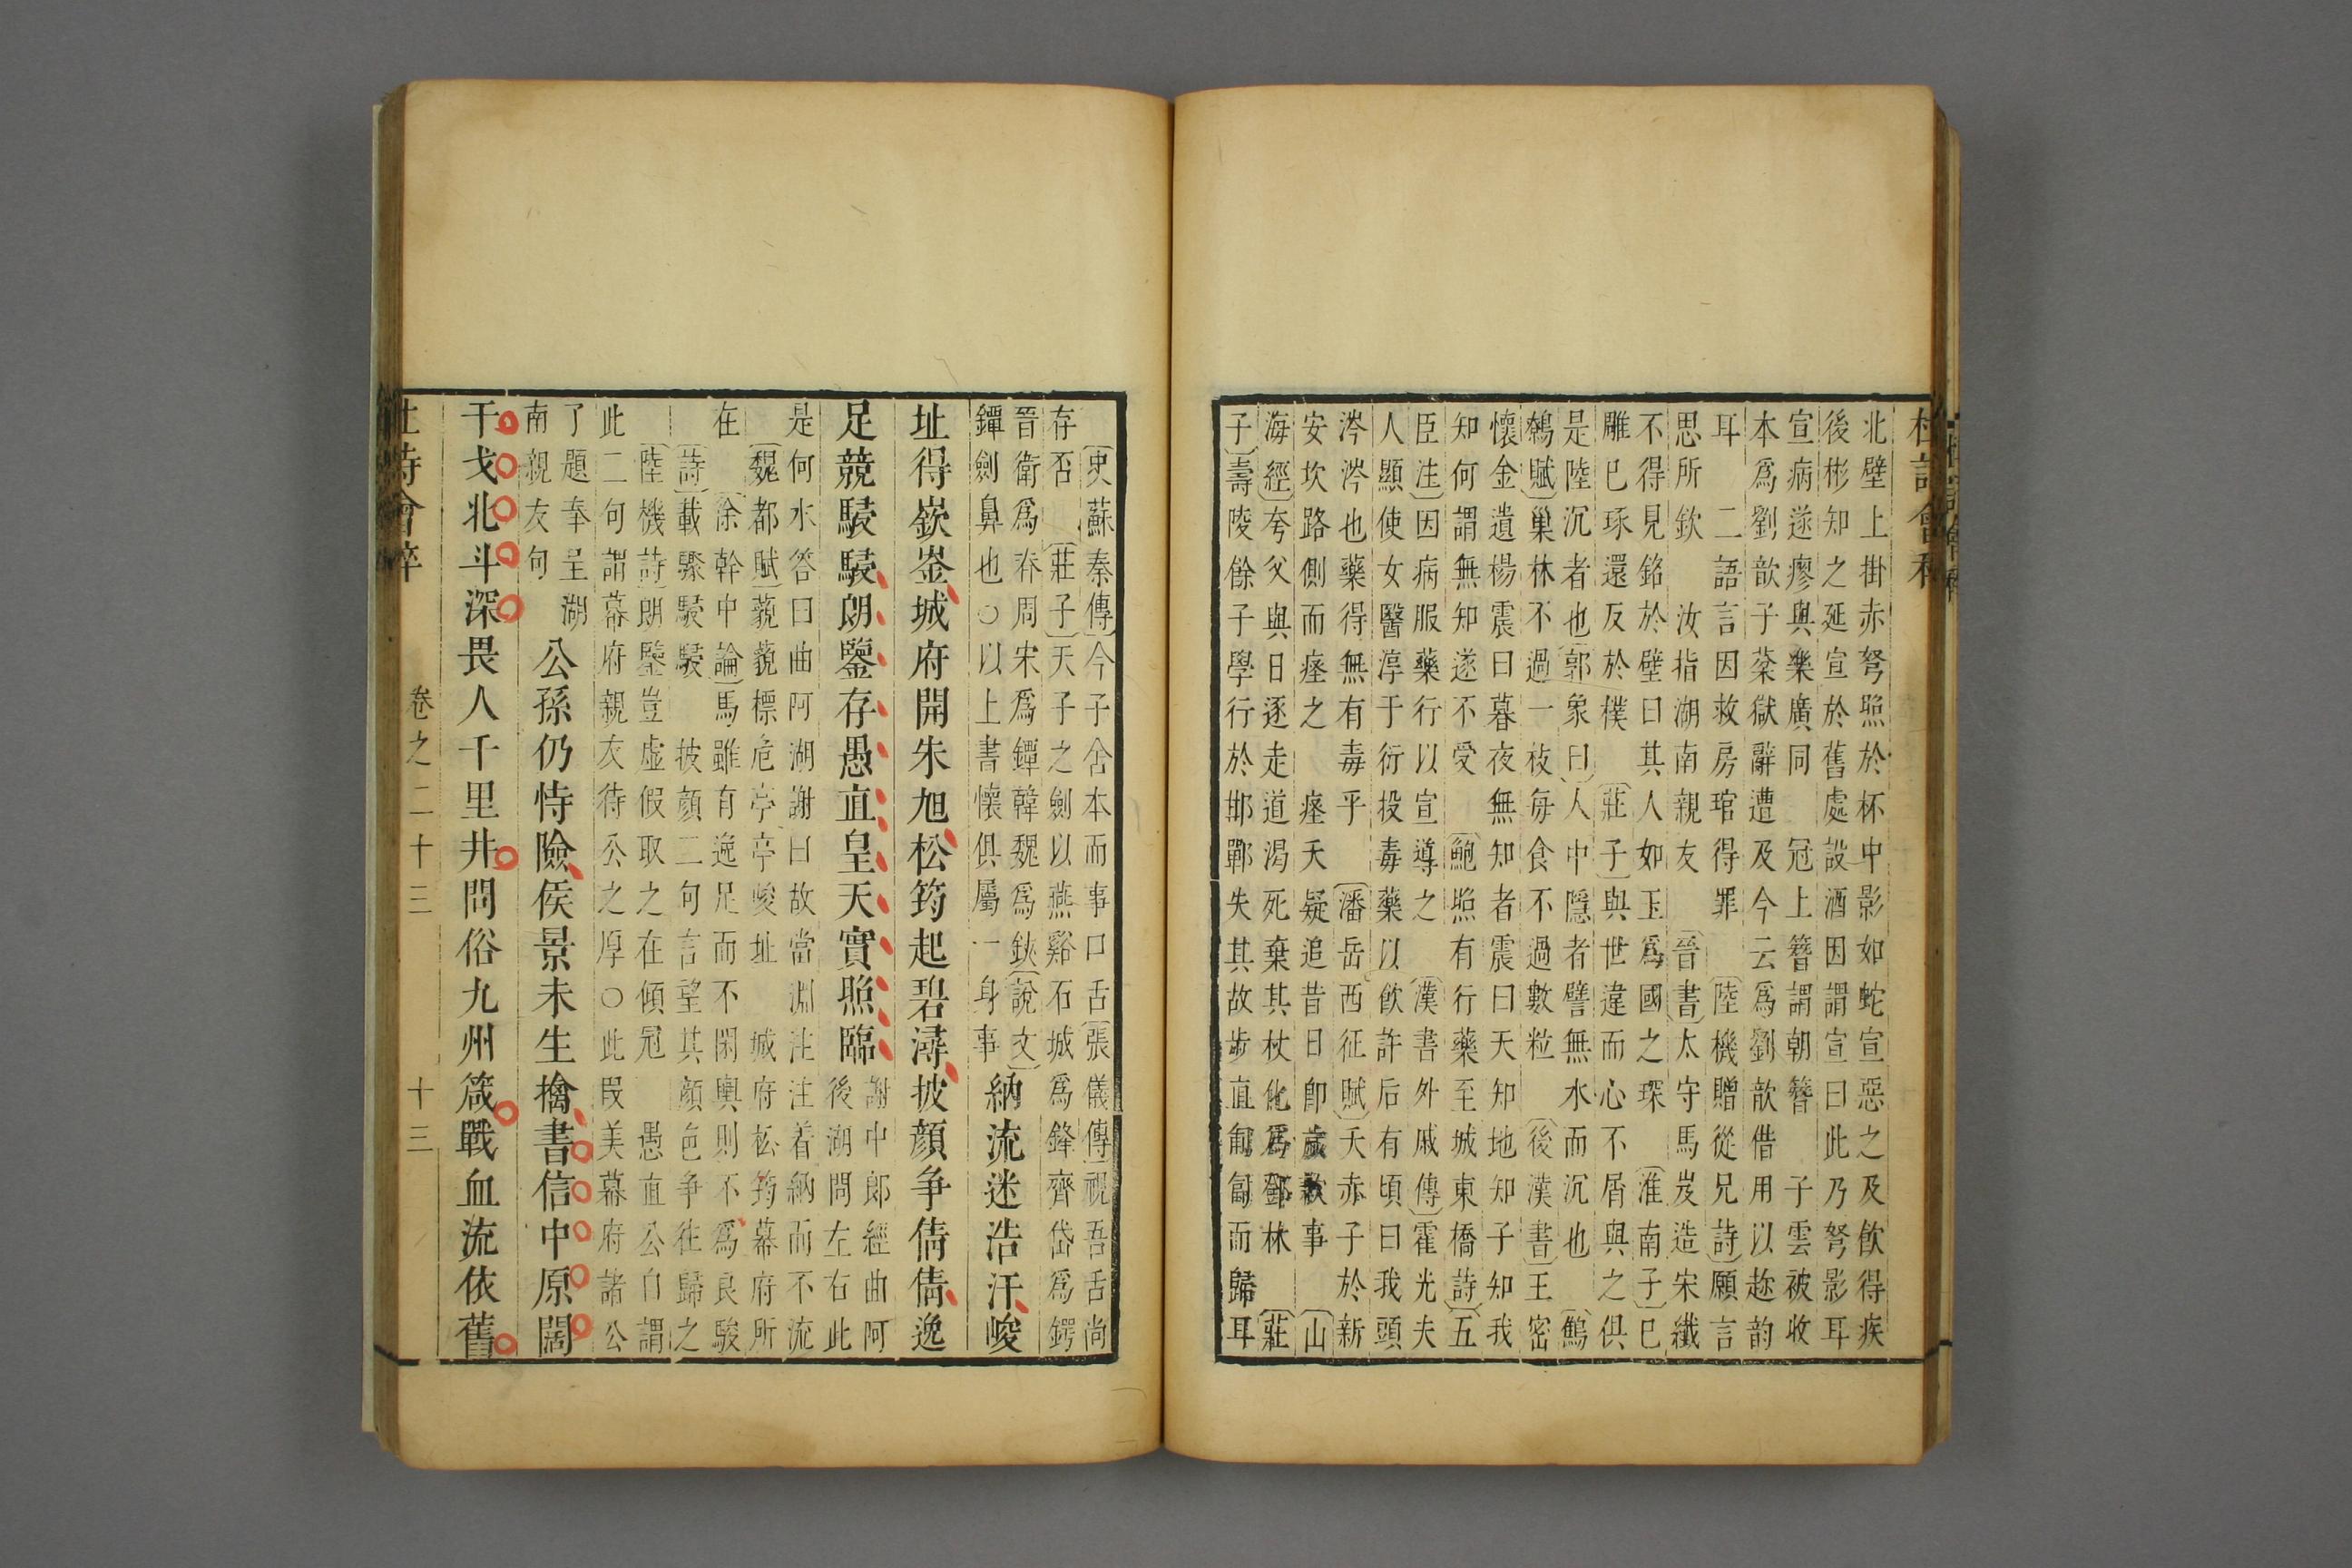 北壁上掛赤弩照於杯中影如蛇宣惡之及飲得疾
後彬知之延宣於舊處設酒因謂宣曰此乃弩影耳
宣病遂瘳與樂廣同 冠上簪謂朝簪 子雲被收
本爲劉歆子棻獄辭遭及今云爲劉歆借用以趂韵
耳 二語言因救房琯得罪 陸機贈從兄詩願言
思所欽 汝指湖南親友 晉書太守馬岌造宋纖
不得見銘於壁曰其人如玉爲國之琛 淮南子已
雕已琢還反於樸 莊子與世違而心不屑與之俱
是陸沉者也郭象曰人中隱者譬無水而沉也 鷦
鷯賦巢林不過一枝每食不過數粒 後漢書王密
懷金遺楊震曰暮夜無知者震曰天知地知子知我
知何謂無知遂不受 鮑照有行藥至城東橋詩五
臣注因病服藥行以宣導之 漢書外戚傳霍光夫
人顯使女醫淳于衍投毒藥以飲許后有頃曰我頭
涔涔也藥得無有毒乎 潘岳西征賦夭赤子於新
安坎路側而瘞之 瘞夭疑追昔日卽歲歉事 山
海經夸父與日逐走道渴死棄其杖化爲鄧林 莊
子壽陵餘子學行於邯鄲失其故步直匍匐而歸耳
杜詩會稡
史蘇秦傳今子舍本而事口舌張儀傳視吾舌尚
存否 莊子天子之劍以燕谿石城爲鋒齊岱爲鍔
晉衛爲脊周宋爲鐔韓魏爲鋏說文
鐔劍鼻也○以上書懷俱屬一身事
納流迷浩汗峻
址得嶔崟城府開朱旭松筠起碧潯披顏爭倩倩逸
足競駸駸朗鑒存愚直皇天實照臨
謝中郎經曲阿
後湖問左右此
是何水答曰曲阿湖謝曰故當淵注注着納而不流
魏都賦藐藐標危亭亭峻址 城府松筠幕府所
在 徐幹中論馬雖有逸足而不閑輿則不爲良駿
詩載驟駸駸 披顏二句言望其顏色爭往歸之
陸機詩朗鑒豈虛假取之在傾冠 愚直公自謂
此二句謂幕府親友待公之厚○此叚美幕府諸公
了題奉呈湖
南親友句
公孫仍恃險侯景未生擒書信中原闊
干戈北斗深畏人千里井問俗九州箴戰血流依舊
杜詩會稡 卷之二十三 十三